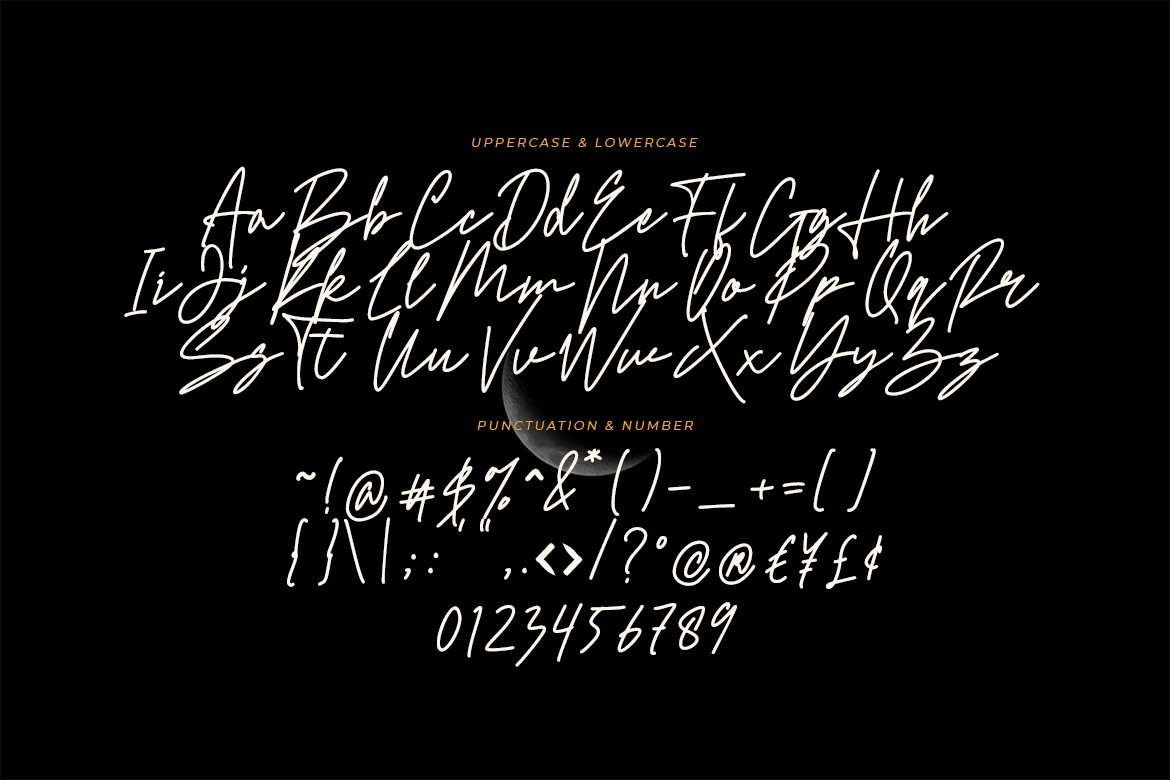 UPPERCASE & LOWERCASE
Aa Bb Cc Dd Ee Ff Gg Hh
Ii Jj Kk Ll Mm Nn Oo Pp Qq Rr
Ss Tt Uu Vv Ww Xx Yy Zz
PUNCTUATION & NUMBER
~!@#$%^&*()-_+=[]
{}\|;:'",.<>/?°©®€¥£¢
0123456789